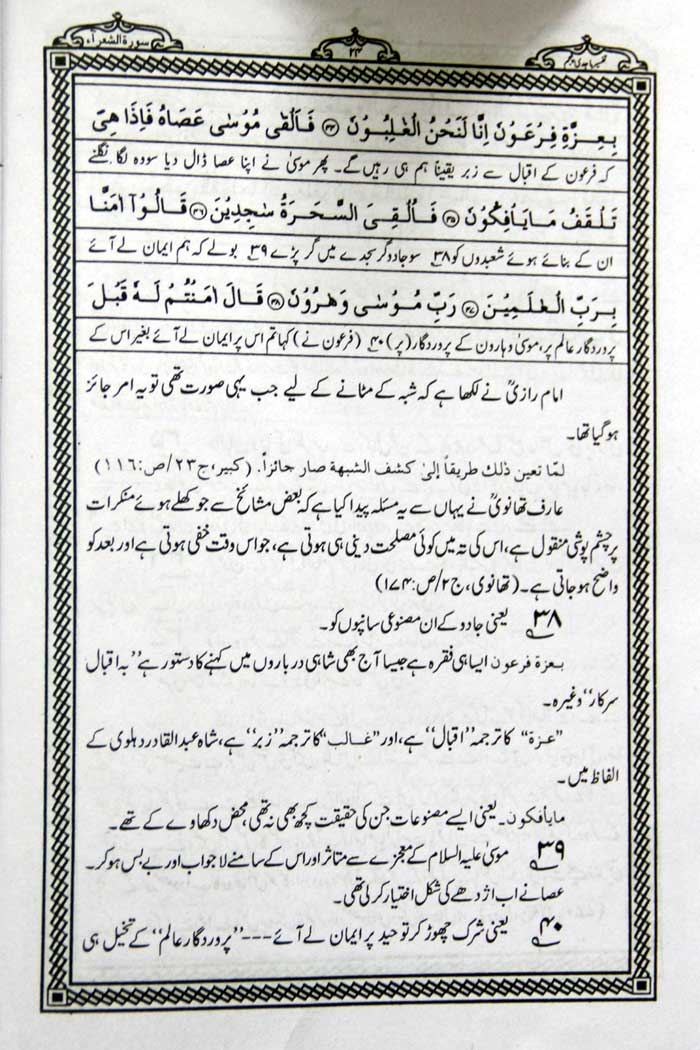 تفسیر ماجدی پنجم
۲۴
سورۃ الشعرآء
بِعِزَّةِ فِرْعَوْنَ اِنَّا لَنَحْنُ الْغٰلِبُوْنَ ﴿۴۴﴾ فَاَلْقٰى مُوْسٰى عَصَاهُ فَاِذَا هِىَ
کہ فرعون کے اقبال سے زبر یقیناً ہم ہی رہیں گے۔ پھر موسیٰ نے اپنا عصا ڈال دیا سو وہ لگا نگلنے
تَلْقَفُ مَا يَاْفِكُوْنَ ﴿۴۵﴾ فَاُلْقِىَ السَّحَرَةُ سٰجِدِيْنَ ﴿۴۶﴾ قَالُوْٓا اٰمَنَّا
ان کے بنائے ہوئے شعبدوں کو ۳۸ سو جادوگر سجدے میں گر پڑے ۳۹ بولے کہ ہم ایمان لے آئے
بِرَبِّ الْعٰلَمِيْنَ ﴿۴۷﴾ رَبِّ مُوْسٰى وَهٰرُوْنَ ﴿۴۸﴾ قَالَ اٰمَنْتُمْ لَهٗ قَبْلَ
پروردگار عالم پر، موسیٰ و ہارون کے پروردگار (پر) ۴۰ (فرعون نے) کہا تم اس پر ایمان لے آئے بغیر اس کے
امام رازیؒ نے لکھا ہے کہ شبہ کے مٹانے کے لیے جب یہی صورت تھی تو یہ امر جائز
ہو گیا تھا۔
لمّا تعین ذلك طریقا إلیٰ کشف الشبهة صار جائزاً. (کبیر، ج۲۳/ص:۱۱۶)
عارف تھانویؒ نے یہاں سے یہ مسئلہ پیدا کیا ہے کہ بعض مشائخ سے جو کھلے ہوئے منکرات
پر چشم پوشی منقول ہے، اس کی تہ میں کوئی مصلحت دینی ہی ہوتی ہے، جو اس وقت خفی ہوتی ہے اور بعد کو
واضح ہو جاتی ہے۔ (تھانوی، ج۲/ص:۱۷۴)
۳۸ یعنی جادو کے ان مصنوعی سانپوں کو۔
بعزة فرعون ایسا ہی فقرہ ہے جیسا آج بھی شاہی درباروں میں کہنے کا دستور ہے ”بہ اقبال
سرکار“ وغیرہ۔
”عزة“ کا ترجمہ ”اقبال“ ہے، اور ”غالب“ کا ترجمہ ”زبر“ ہے، شاہ عبدالقادر دہلوی کے
الفاظ میں۔
مایأفکون۔ یعنی ایسے مصنوعات جن کی حقیقت کچھ بھی نہ تھی، محض دکھاوے کے تھے۔
۳۹ موسیٰ علیہ السلام کے معجزے سے متاثر اور اس کے سامنے لاجواب اور بے بس ہو کر۔
عصا نے اب اژدھے کی شکل اختیار کر لی تھی۔
۴۰ یعنی شرک چھوڑ کر توحید پر ایمان لے آئے --- ”پروردگار عالم“ کے تخیل ہی